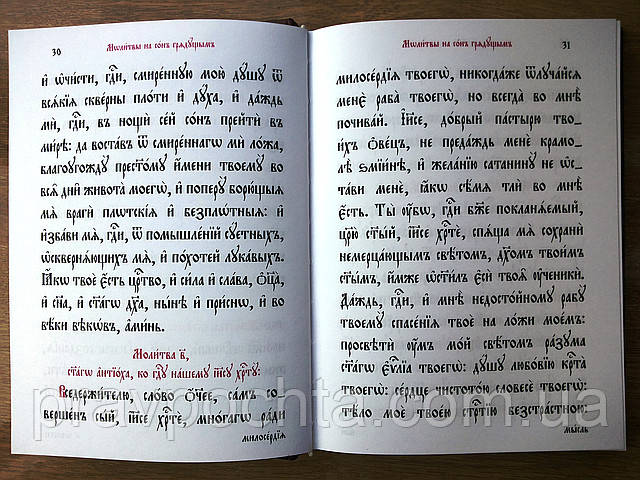 30
Мѡли́твы на со́нъ грѧду́щымъ
и҆ ѡ҆чи́сти, гдⷭ҇и, смире́нную мою̀ дꙋ́шꙋ ѿ
всѧ́кїѧ скве́рны пло́ти и҆ дꙋ́ха, и҆ да́ждь
ми̑, гдⷭ҇и, въ нощѝ се́й со́нъ прейтѝ въ
ми́рѣ: да воста́въ ѿ смире́ннагѡ ми̑ ло́жа,
благоꙋгождꙋ̀ прест҃о́мꙋ и҆́мени твоемꙋ̀ во
всѧ̑ дни̑ живота̀ моегѡ̀, и҆ поперꙋ̀ борю́щыѧ
мѧ̀ врагѝ плѡтскі́ѧ и҆ безплѡ́тныѧ: и҆
и҆зба́ви мѧ̀, гдⷭ҇и, ѿ помышле́нїй сꙋ́етныхъ,
ѡ҆сквернѧ́ющихъ мѧ̀, и҆ по́хотей лꙋка́выхъ.
Ꙗ҆́кѡ твоѐ є҆́сть црⷭ҇тво, и҆ си́ла и҆ сла́ва, ѻ҆ц҃а̀,
и҆ сн҃а, и҆ ст҃а́гѡ дх҃а, ны́нѣ и҆ при́снѡ, и҆ во
вѣ́ки вѣкѡ́въ, а҆ми́нь.
Моли́тва в҃,
ст҃а́гѡ а҆нтїо́ха, ко гдⷭ҇ꙋ на́шемꙋ і҆и҃сꙋ хрⷭ҇тꙋ̀:
Вседержи́телю, сло́во ѻ҆́ч҃ее, са́мъ со-
верше́нъ сы́й, і҆и҃се хрⷭ҇тѐ, мно́гагѡ ра́ди
милосе́рдїѧ
Мѡли́твы на со́нъ грѧду́щымъ
31
милосе́рдїѧ твоегѡ̀, никогда́же ѿлꙋча́йсѧ
менє̀ раба̀ твоегѡ̀, но всегда̀ во мнѣ̀
почива́й. І҆и҃се, до́брый па́стырю тво-
и́хъ ѻ҆ве́цъ, не преда́ждь менѐ крамо-
лѣ̀ ѕмїи́нѣ, и҆ жела́нїю сатанинꙋ̀ не ѡ҆с-
та́ви менѐ, ꙗ҆́кѡ сѣ́мѧ тлѝ во мнѣ̀
є҆́сть. Ты̀ ᲂу҆́бѡ, гдⷭ҇и бж҃е покланѧ́емый,
цр҃ю̀ ст҃ы́й, і҆и҃се хрⷭ҇тѐ, спѧ́ща мѧ̀ сохранѝ
немерца́ющымъ свѣ́томъ, дх҃омъ твои́мъ
ст҃ы́мъ, и҆́мже ѡ҆ст҃и́лъ є҆сѝ твоѧ̑ ᲂу҆ченикѝ.
Да́ждь, гдⷭ҇и, и҆ мнѣ̀ недосто́йномꙋ рабꙋ̀
твоемꙋ̀ спасе́нїе твоѐ на ло́жи мое́мъ:
просвѣтѝ ᲂу҆́мъ мо́й свѣ́томъ ра́зꙋма
ст҃а́гѡ є҆ѵⷢ҇лїа твоегѡ̀: дꙋ́шꙋ любо́вїю крⷭ҇та̀
твоегѡ̀: се́рдце чистото́ю словесѐ твоегѡ̀:
тѣ́ло моѐ твое́ю стрⷭ҇тїю безстра́стною:
мы́сль
pravpochta.com.ua